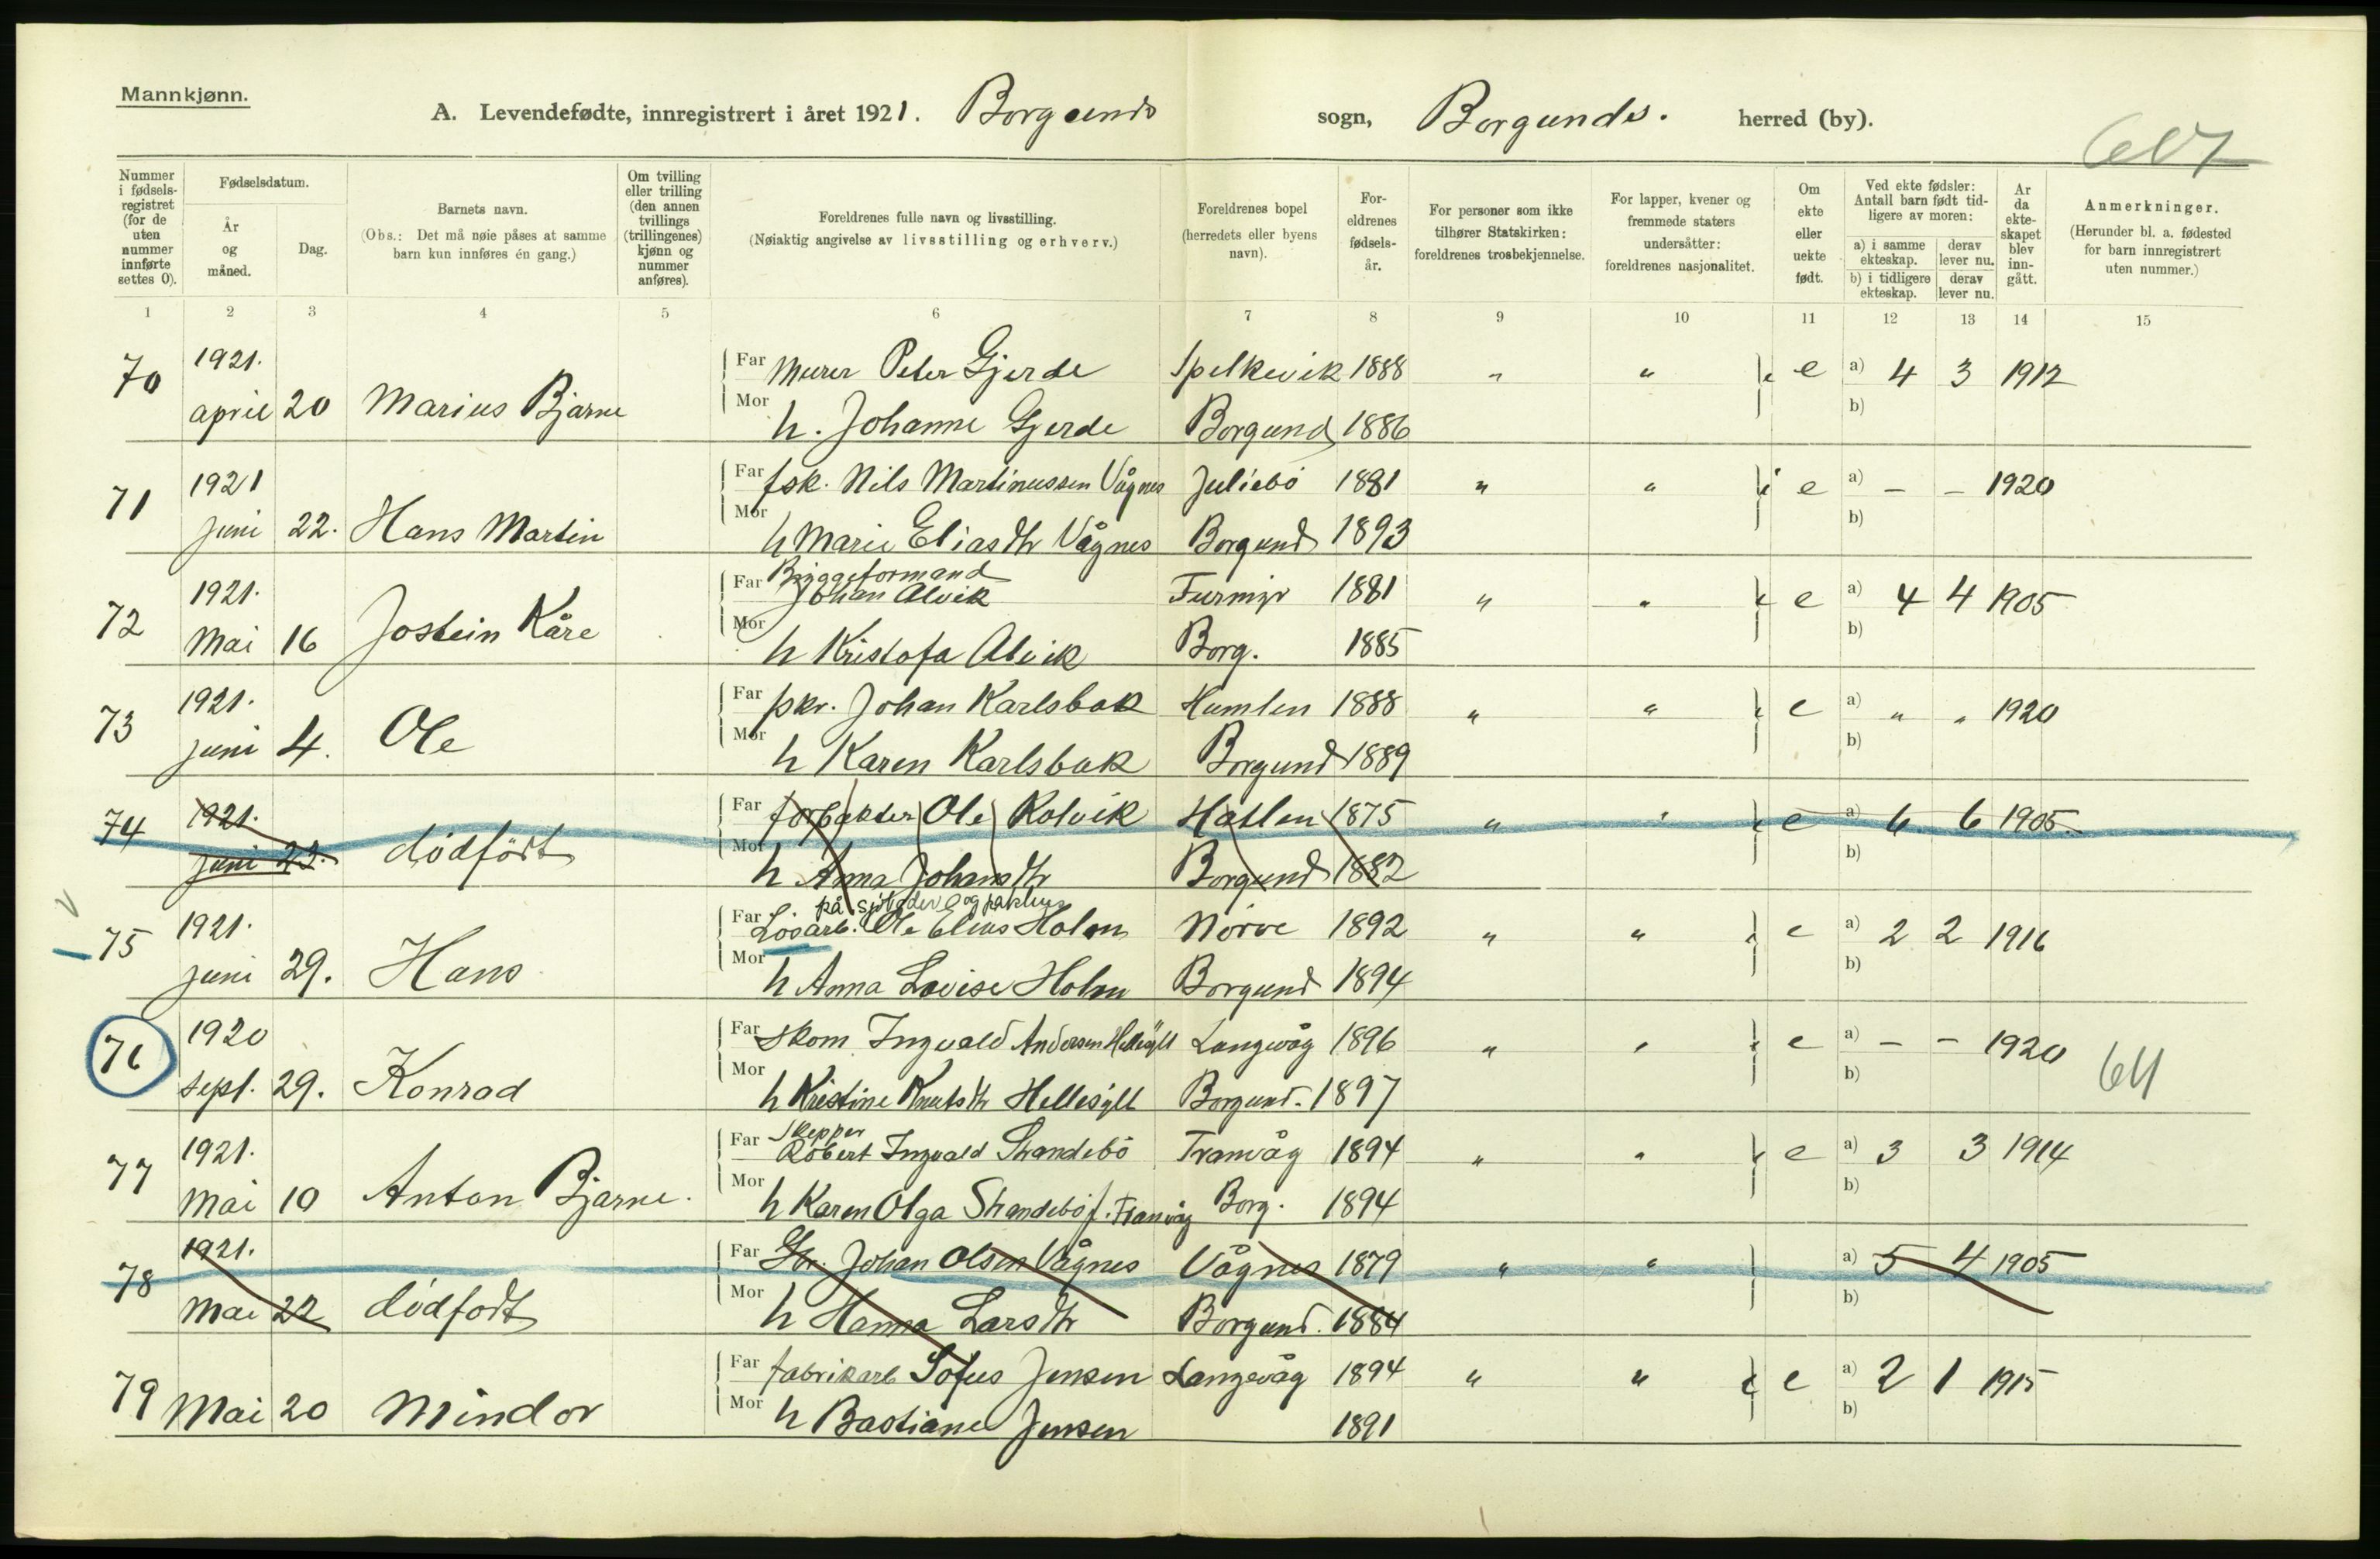 Mannkjønn.
A. Levendefødte, innregistrert i året 1921. Borgunds sogn, Borgunds. herred (by).
607
Nummer i fødselsregistret (for de uten nummer innførte settes 0).
Fødselsdatum.
År og måned.
Dag.
Barnets navn.
(Obs.: Det må nøie påses at samme barn kun innføres én gang.)
Om tvilling eller trilling (den annen tvillings (trillingenes) kjønn og nummer anføres).
Foreldrenes fulle navn og livsstilling.
(Nøiaktig angivelse av livsstilling og erhverv.)
Foreldrenes bopel (herredets eller byens navn).
Foreldrenes fødselsår.
For personer som ikke tilhører Statskirken: foreldrenes trosbekjennelse.
For lapper, kvener og fremmede staters undersåtter: foreldrenes nasjonalitet.
Om ekte eller uekte født.
Ved ekte fødsler: Antall barn født tidligere av moren:
a) i samme ekteskap. derav lever nu.
b) i tidligere ekteskap. derav lever nu.
År da ekteskapet blev inngått.
Anmerkninger.
(Herunder bl. a. fødested for barn innregistrert uten nummer.)
1 2 3 4 5 6 7 8 9 10 11 12 13 14 15
70 1921. Far Murer Peter Gjerde Spelkevik 1888 " " e a) 4 3 1912
april 20 Marius Bjarne Mor h. Johanne Gjerde Borgund 1886 b)
71 1921 Far fsk. Nils Martinussen Vågnes Juliebö 1881 " " e a) - - 1920
juni 22. Hans Martin Mor h Marie Eliasdtr Vågnes Borgund 1893 b)
72 1921. Far Bryggeformand Johan Alvik Furmyr 1881 " " e a) 4 4 1905
Mai 16 Jostein Kåre Mor h Kristofa Alvik Borg. 1885 b)
73 1921. Far Johan Karlsbak Humlen 1888 " " e a) " " 1920
juni 4. Ole Mor h Karen Karlsbak Borgund 1889 b)
74 1921. Far forpakter Ole Kolvik Hatlen 1875 " " e a) 6 6 1905
juni 23. dödfödt Mor h Anna Johansdtr Borgund 1882 b)
75 1921. Far på sjöboder og pakhus Lösarb. Ole Elias Holm Nörve 1892 " " e a) 2 2 1916
juni 29. Hans Mor h Anna Lovise Holm Borgund 1894 b)
76 1920 Far skom. Ingvald Andersen Hellesylt Langevåg 1896 " " e a) - - 1920
sept. 29. Konrad Mor h Kristine Knutsdtr Hellesylt Borgund. 1897 b) 64
77 1921. Far Skepper Robert Ingvald Strandebö Tranvåg 1894 " " e a) 3 3 1914
Mai 10 Anton Bjarne. Mor h Karen Olga Strandebö f. Tranvåg Borg. 1894 b)
78 1921. Far Johan Olsen Vågnes Vågnes 1879 " " a) 5 4 1905
Mai 22 dödfödt Mor h Hanna Larsdtr Borgund. 1884 b)
79 Far fabrikarb Sofus Jensen Langevåg 1894 " " e a) 2 1 1915
Mai 20 Mindor Mor h Bastiane Jensen 1891 b)